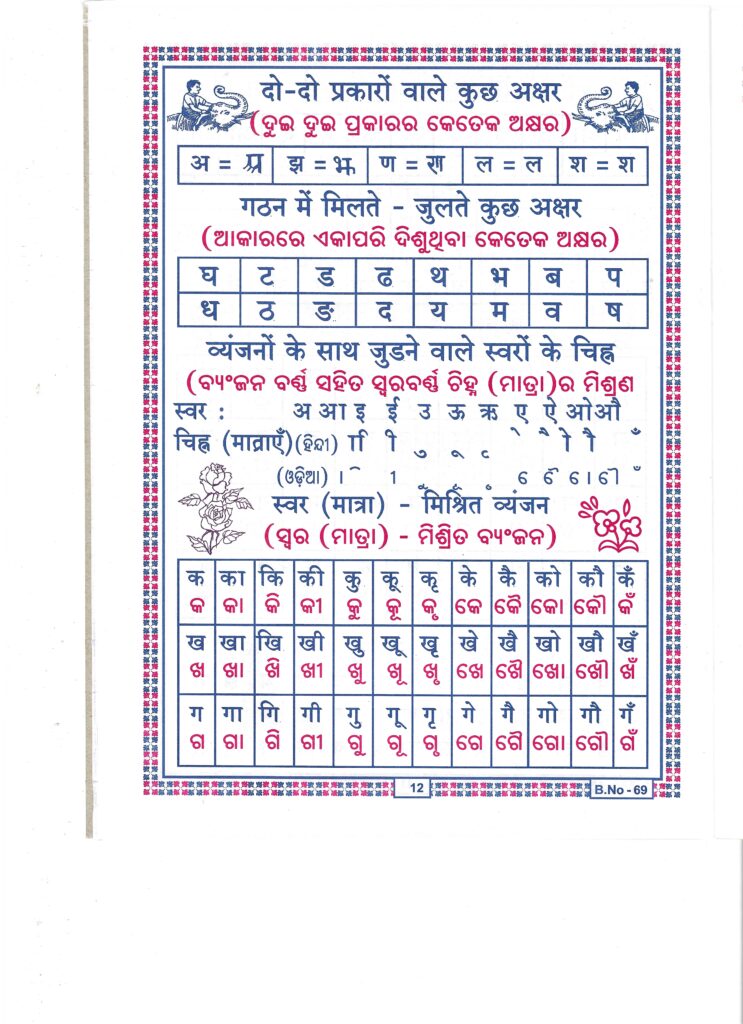 दो-दो प्रकारों वाले कुछ अक्षर
(ଦୁଇ ଦୁଇ ପ୍ରକାରର କେତେକ ଅକ୍ଷର)
अ = झ = ण = ल = ल श = श
गठन में मिलते - जुलते कुछ अक्षर
(ଆକାରରେ ଏକାପରି ଦିଶୁଥିବା କେତେକ ଅକ୍ଷର)
घ ट ड ढ थ भ ब प
ध ठ ङ द य म व ष
व्यंजनों के साथ जुडने वाले स्वरों के चिह्न
(ବ୍ୟଂଜନ ବର୍ଣ୍ଣ ସହିତ ସ୍ୱରବର୍ଣ୍ଣ ଚିହ୍ନ (ମାତ୍ରା)ର ମିଶ୍ରଣ
स्वर : अ आ इ ई उ ऊ ऋ ए ऐ ओ औ
चिह्न (मात्राएँ) (ହିନ୍ଦୀ) ा ि ी ु ू ृ े ै ो ौ ँ
(ଓଡ଼ିଆ) ା ି ୀ ୁ ୂ ୃ େ ୈ ୋ ୌ ଁ
स्वर (मात्रा) - मिश्रित व्यंजन
(ସ୍ୱର (ମାତ୍ରା) - ମିଶ୍ରିତ ବ୍ୟଂଜନ)
क का कि की कु कू कृ के कै को कौ कँ
କ କା କି କୀ କୁ କୂ କୃ କେ କୈ କୋ କୌ କଁ
ख खा खि खी खु खू खृ खे खै खो खौ खँ
ଖ ଖା ଖି ଖୀ ଖୁ ଖୂ ଖୃ ଖେ ଖୈ ଖୋ ଖୌ ଖଁ
ग गा गि गी गु गू गृ गे गै गो गौ गँ
ଗ ଗା ଗି ଗୀ ଗୁ ଗୂ ଗୃ ଗେ ଗୈ ଗୋ ଗୌ ଗଁ
12
B.No - 69